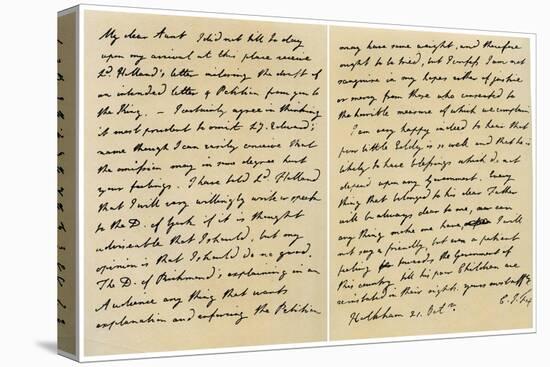 My dear Aunt I did not till to day
upon my arrival at this place receive
Ld. Holland's letter inclosing the draft of
an intended letter & Petition from you to
the King. — I certainly agree in thinking
it most prudent to omit Ld. Edward's
name though I can easily conceive that
the omission may in some degree hurt
your feelings. I have told Ld. Holland
that I will very willingly write or speak
to the D. of York if it is thought
adviseable that I should, but my
opinion is that I should do no good.
The D. of Richmond's explaining in an
Audience any thing that wants
explanation and enforcing the Petition
may have some weight, and therefore
ought to be tried, but I confess I am not
sanguine in my hopes either of justice
or mercy from those who consented to
the horrible measure of which we complain
I am very happy indeed to hear that
poor little Eddy is so well and that he is
likely to have blessings which do not
depend upon any Government. Every
thing that belonged to his dear Father
will be always dear to me, nor can
any thing make me have I will
not say a friendly, but even a patient
feeling towards the Government of
this country till his poor Children are
reinstated in their rights. yours most
Holkham 21. Octr. C. J. Fox